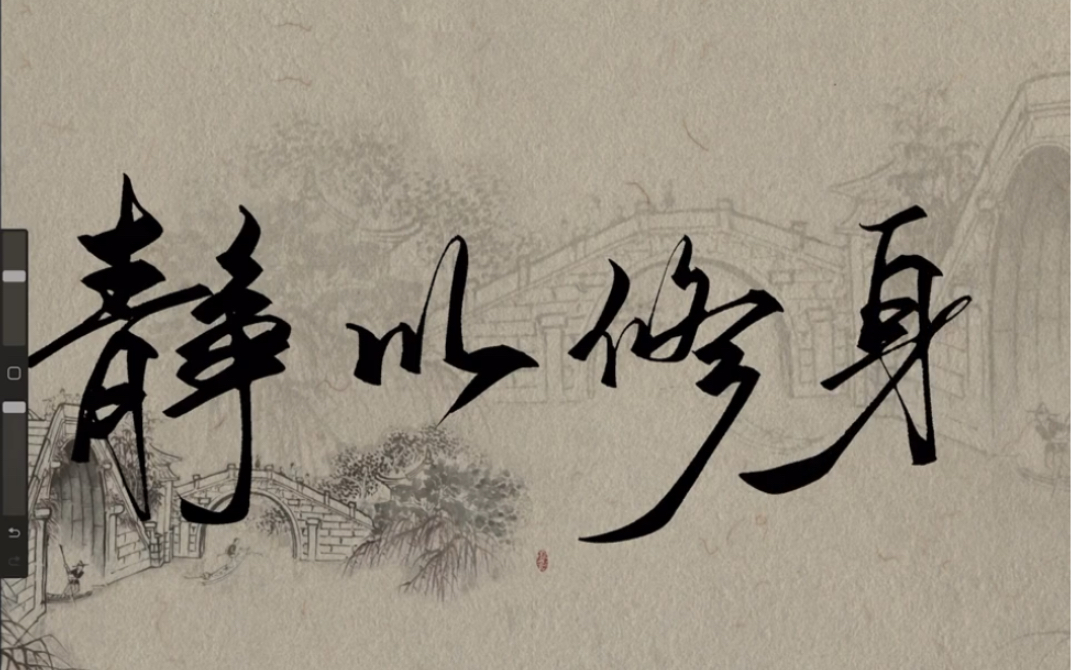 静以修身